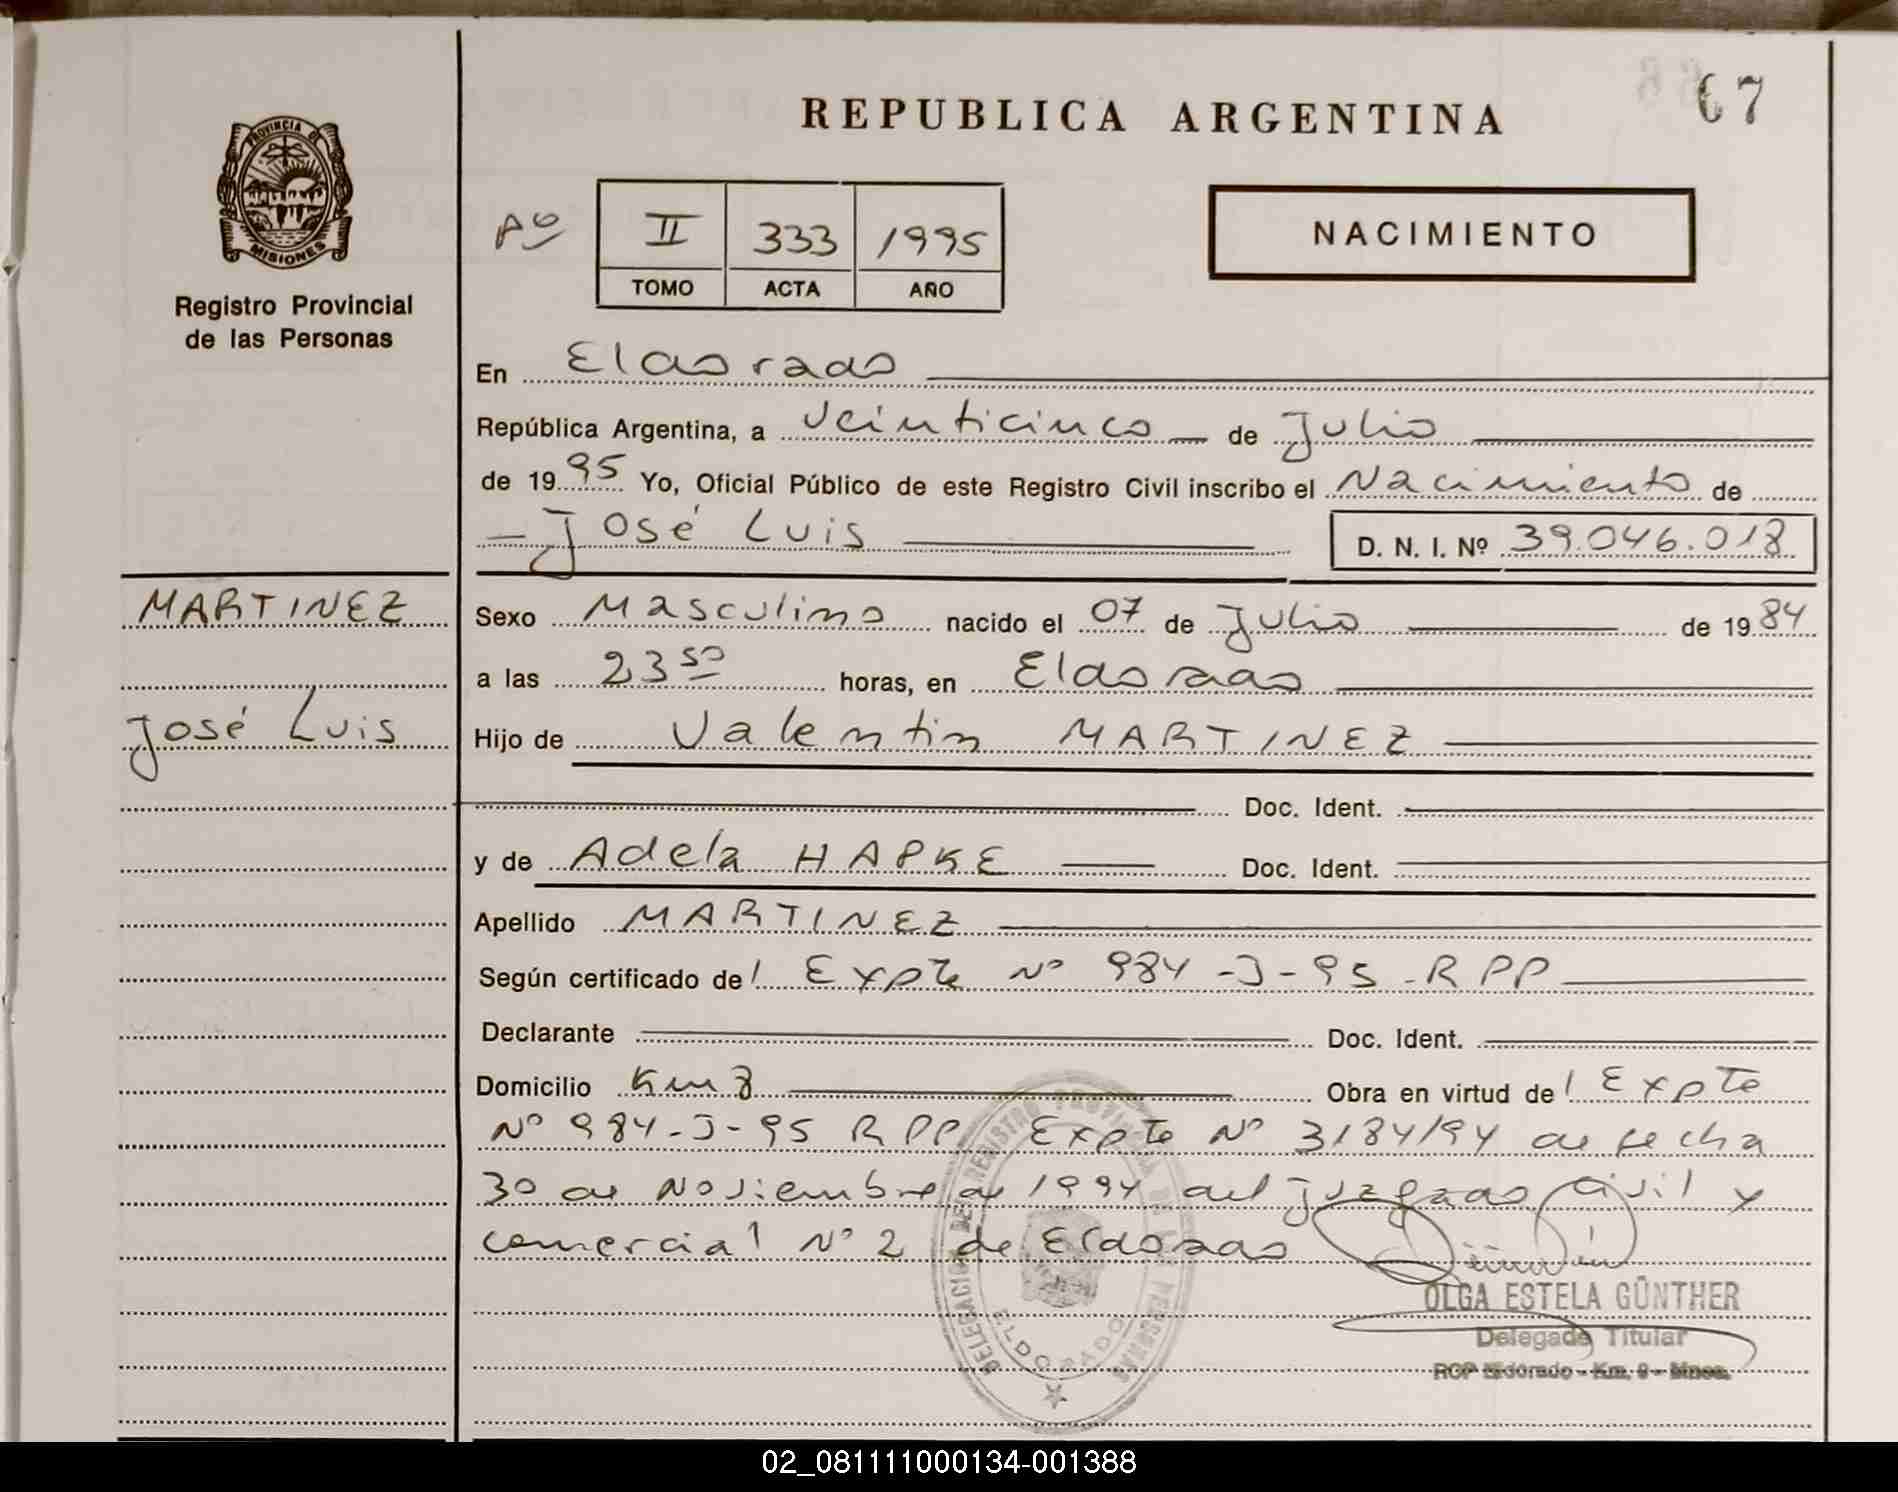 67
REPUBLICA ARGENTINA
PROVINCIA DE MISIONES
Registro Provincial
de las Personas
Aº II 333 1995
TOMO ACTA AÑO
NACIMIENTO
En Eldorado
República Argentina, a veinticinco de Julio
de 1995 Yo, Oficial Público de este Registro Civil inscribo el Nacimiento de
José Luis D. N. I. Nº 39.046.018
MARTINEZ
José Luis
Sexo Masculino nacido el 07 de Julio de 1984
a las 23 50 horas, en Eldorado
Hijo de Valentin MARTINEZ
Doc. Ident.
y de Adela HAPKE Doc. Ident.
Apellido MARTINEZ
Según certificado de l Expte Nº 984-J-95-RPP
Declarante Doc. Ident.
Domicilio Km 8 Obra en virtud de l Expte
Nº 984-J-95 RPP Expte Nº 3184/94 de fecha
30 de Noviembre de 1994 del Juzgado Civil y
comercial Nº 2 de Eldorado
DELEGACION DE REGISTRO PROVINCIAL DE LAS PERSONAS
ELDORADO
OLGA ESTELA GÜNTHER
Delegada Titular
RCP Eldorado - Km. 9 - Mnes.
02_081111000134-001388